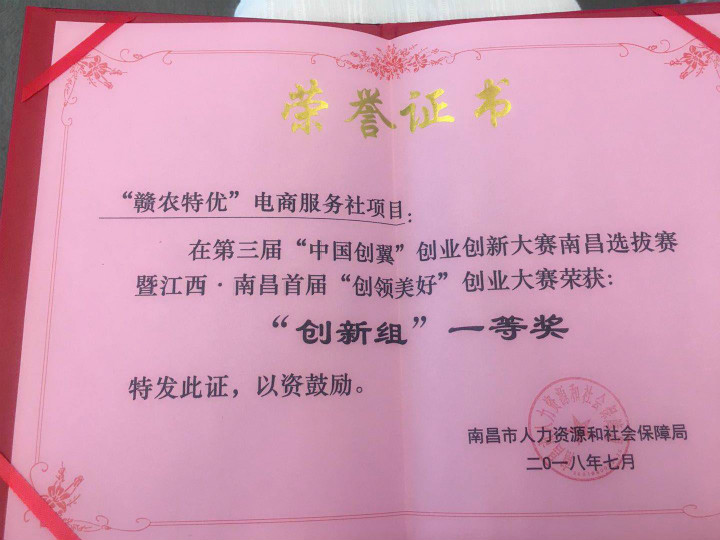 荣誉证书
“赣农特优”电商服务社项目：
在第三届“中国创翼”创业创新大赛南昌选拔赛
暨江西·南昌首届“创领美好”创业大赛荣获：
“创新组”一等奖
特发此证，以资鼓励。
南昌市人力资源和社会保障局
二〇一八年七月